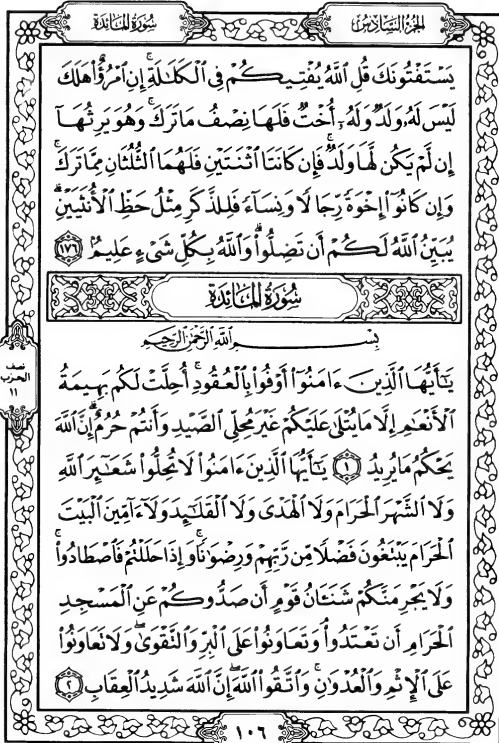 الجزء السادس
سورة المائدة
يَسْتَفْتُونَكَ قُلِ ٱللَّهُ يُفْتِيكُمْ فِى ٱلْكَلَـٰلَةِۚ إِنِ ٱمْرُؤٌا۟ هَلَكَ
لَيْسَ لَهُۥ وَلَدٌ وَلَهُۥٓ أُخْتٌ فَلَهَا نِصْفُ مَا تَرَكَۚ وَهُوَ يَرِثُهَآ
إِن لَّمْ يَكُن لَّهَا وَلَدٌۚ فَإِن كَانَتَا ٱثْنَتَيْنِ فَلَهُمَا ٱلثُّلُثَانِ مِمَّا تَرَكَۚ
وَإِن كَانُوٓا۟ إِخْوَةً رِّجَالًا وَنِسَآءً فَلِلذَّكَرِ مِثْلُ حَظِّ ٱلْأُنثَيَيْنِۗ
يُبَيِّنُ ٱللَّهُ لَكُمْ أَن تَضِلُّوا۟ۗ وَٱللَّهُ بِكُلِّ شَىْءٍ عَلِيمٌۢ ١٧٦
سُورَةُ المَائِدَة
بِسْمِ ٱللَّهِ ٱلرَّحْمَـٰنِ ٱلرَّحِيمِ
يَـٰٓأَيُّهَا ٱلَّذِينَ ءَامَنُوٓا۟ أَوْفُوا۟ بِٱلْعُقُودِۚ أُحِلَّتْ لَكُم بَهِيمَةُ
ٱلْأَنْعَـٰمِ إِلَّا مَا يُتْلَىٰ عَلَيْكُمْ غَيْرَ مُحِلِّى ٱلصَّيْدِ وَأَنتُمْ حُرُمٌۗ إِنَّ ٱللَّهَ
يَحْكُمُ مَا يُرِيدُ ١ يَـٰٓأَيُّهَا ٱلَّذِينَ ءَامَنُوا۟ لَا تُحِلُّوا۟ شَعَـٰٓئِرَ ٱللَّهِ
وَلَا ٱلشَّهْرَ ٱلْحَرَامَ وَلَا ٱلْهَدْىَ وَلَا ٱلْقَلَـٰٓئِدَ وَلَآ ءَآمِّينَ ٱلْبَيْتَ
ٱلْحَرَامَ يَبْتَغُونَ فَضْلًا مِّن رَّبِّهِمْ وَرِضْوَٰنًاۚ وَإِذَا حَلَلْتُمْ فَٱصْطَادُوا۟ۚ
وَلَا يَجْرِمَنَّكُمْ شَنَـَٔانُ قَوْمٍ أَن صَدُّوكُمْ عَنِ ٱلْمَسْجِدِ
ٱلْحَرَامِ أَن تَعْتَدُوا۟ۘ وَتَعَاوَنُوا۟ عَلَى ٱلْبِرِّ وَٱلتَّقْوَىٰۖ وَلَا تَعَاوَنُوا۟
عَلَى ٱلْإِثْمِ وَٱلْعُدْوَٰنِۚ وَٱتَّقُوا۟ ٱللَّهَۖ إِنَّ ٱللَّهَ شَدِيدُ ٱلْعِقَابِ ٢
نصف
الحزب
١١
١٠٦